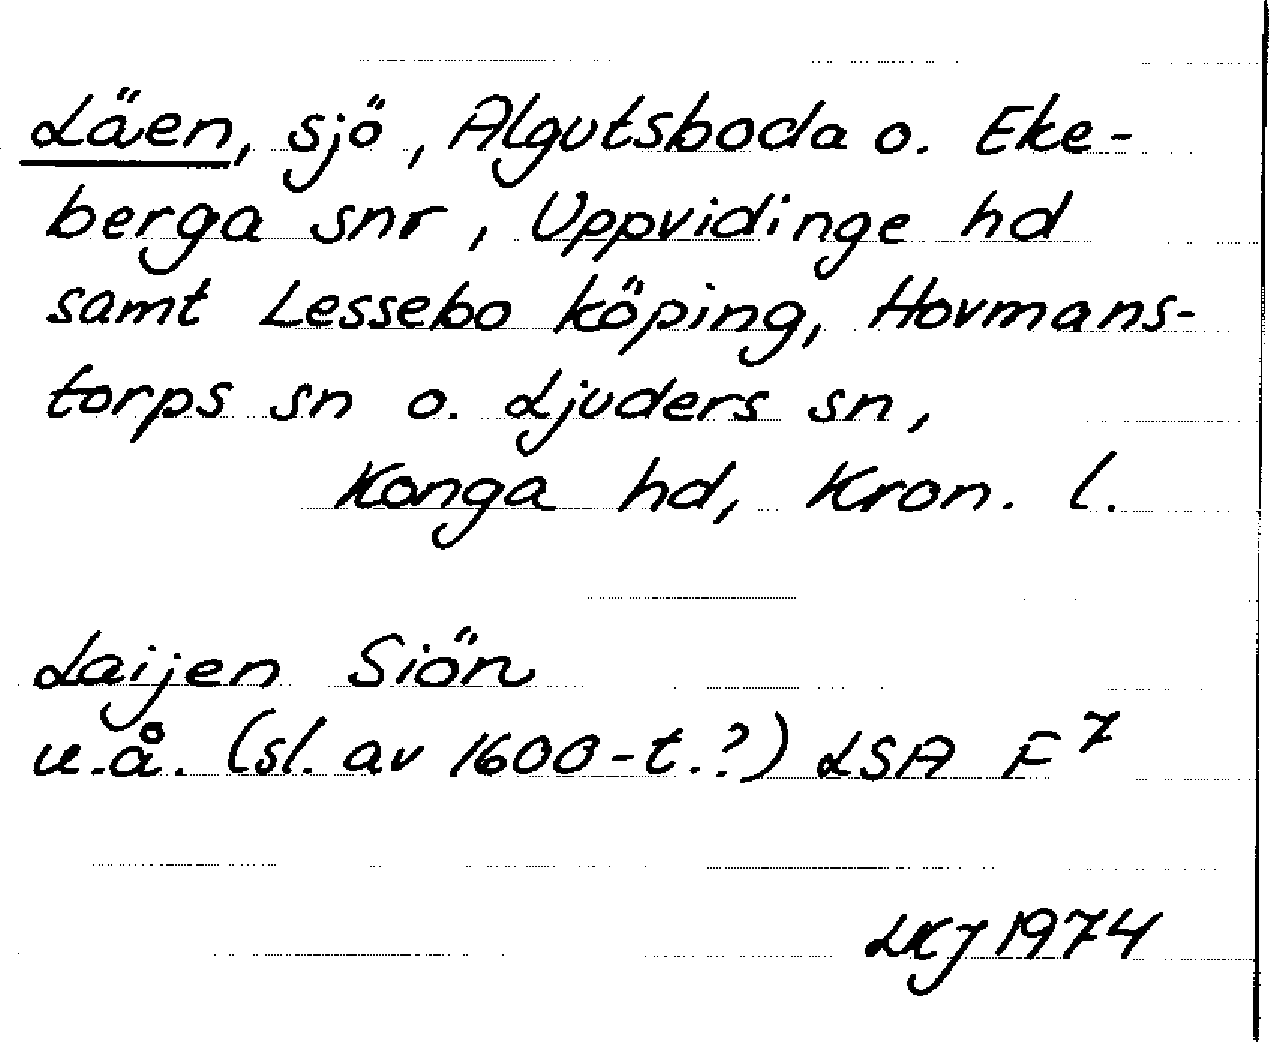 Läen, sjö, Algutsboda o. Eke-
berga snr, Uppvidinge hd
samt Lessebo köping, Hovmans-
torps sn o. Ljuders sn,
Konga hd, Kron. l.
Laijen Siön
u.å. (sl. av 1600-t.?) LSA F7
LKJ 1974